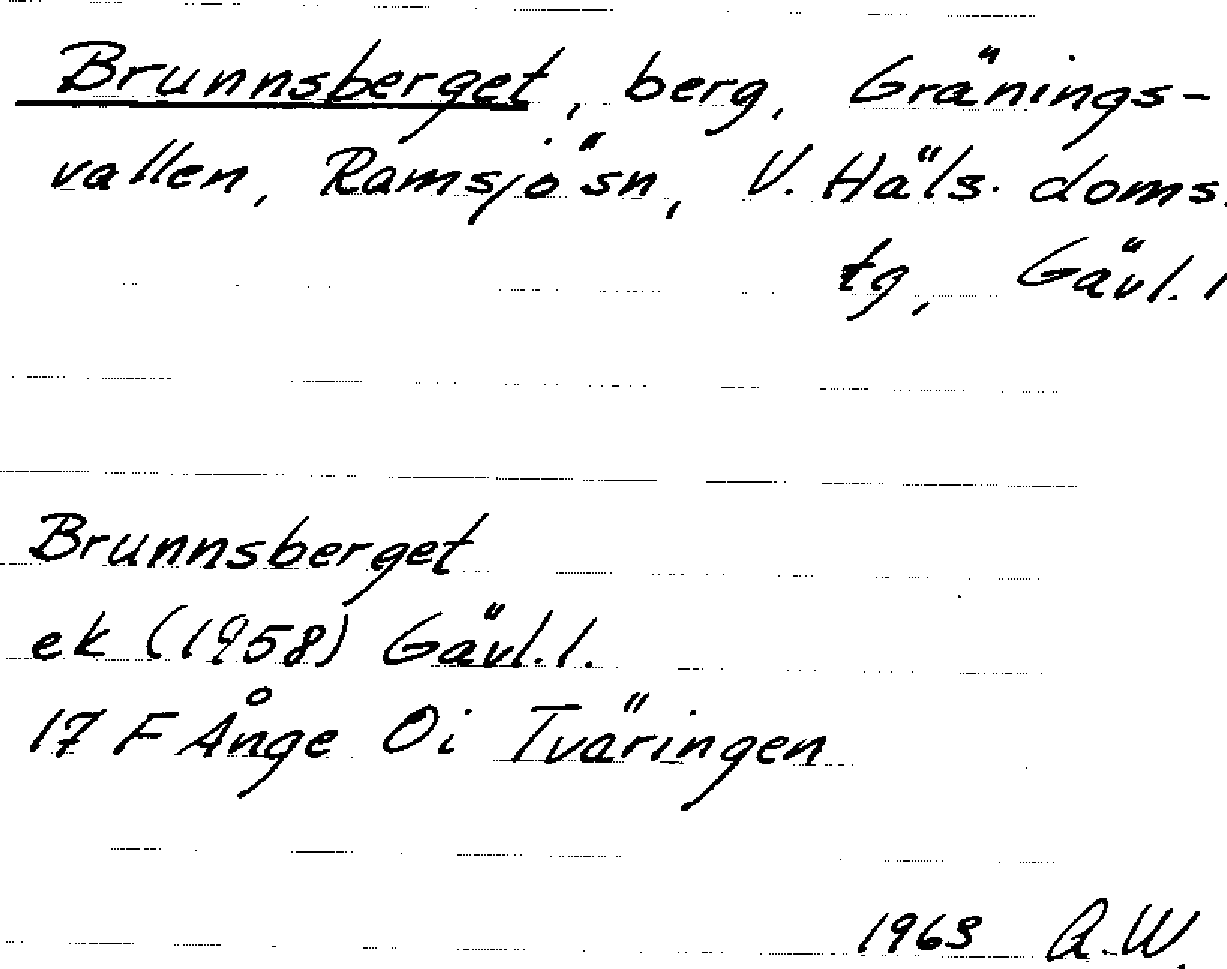 Brunnsberget, berg, Gränings-
vallen, Ramsjö sn, V. Häls. doms.
tg, Gävl. l
Brunnsberget
ek (1958) Gävl. l.
17 F Ånge 0i Tväringen
1963 A.W.